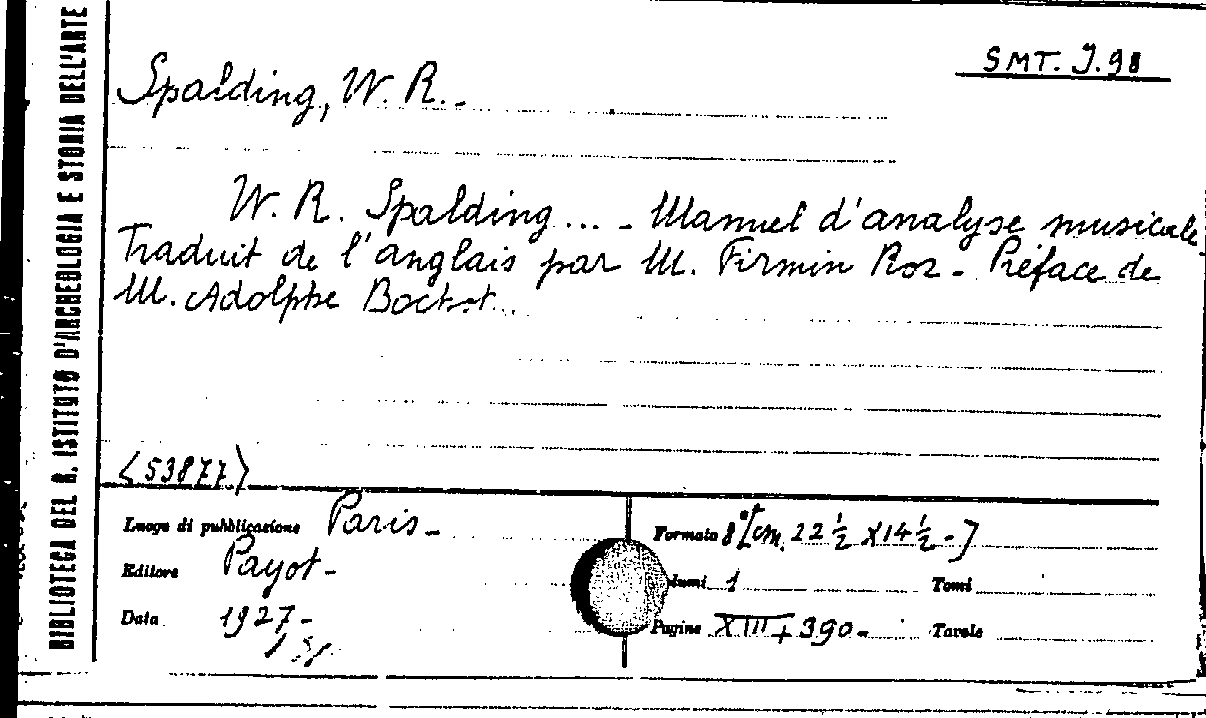 BIBLIOTECA DEL R. ISTITUTO D'ARCHEOLOGIA E STORIA DELL'ARTE
SMT. J.98
Spalding, W. R. -
W. R. Spalding ... - Manuel d'analyse musicale
Traduit de l'anglais par M. Firmin Roz - Préface de
M. Adolphe Boschot...
(53877)
Luogo di pubblicazione Paris -
Editore Payot -
Data 1927 -
Formato 8° [cm. 22 ½ X 14 ½ -]
lumi 1
Tomi
Pagine XIII + 390 -
Tavole